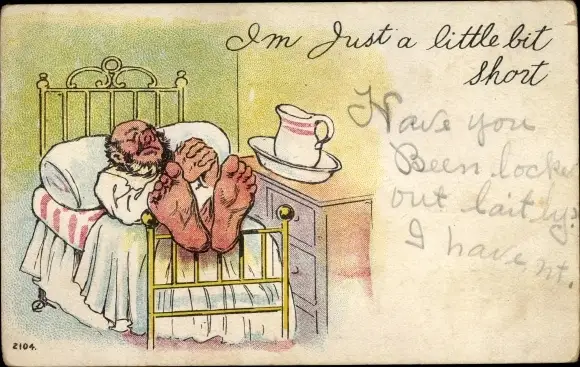 I'm Just a little bit
short
Have you
Been locked
out laitly?
I havent.
2104.